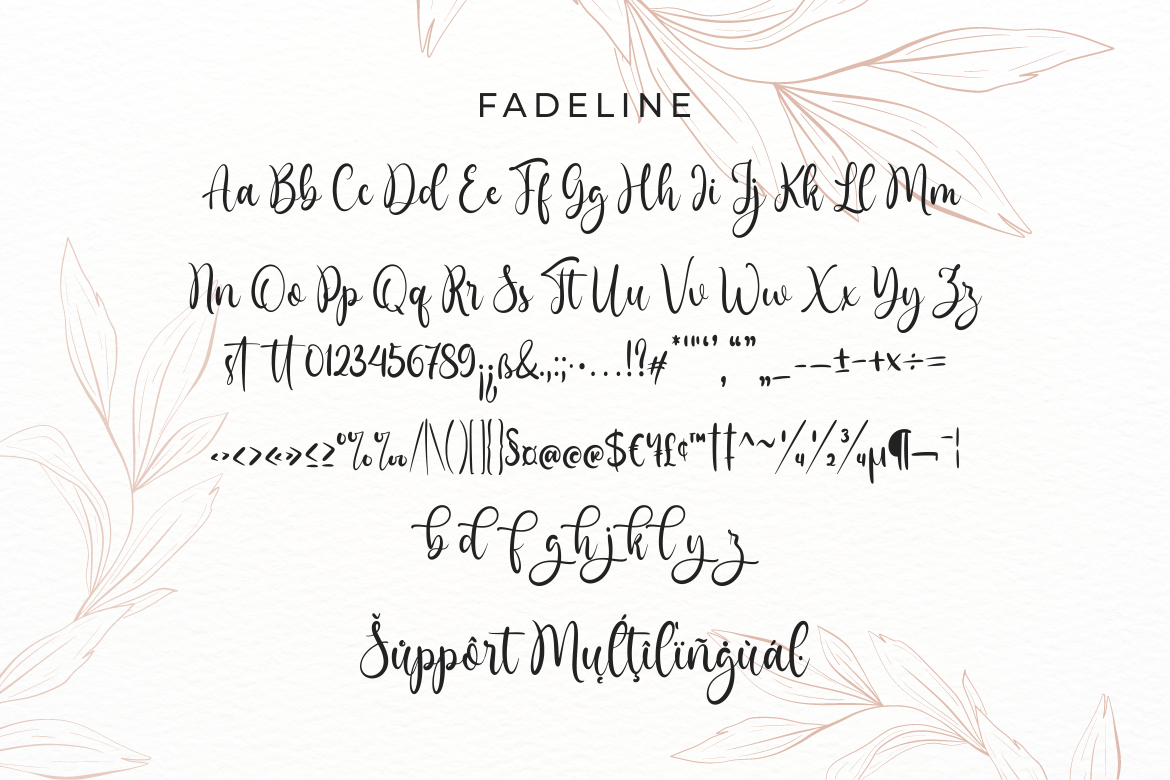 FADELINE
Aa Bb Cc Dd Ee Ff Gg Hh Ii Jj Kk Ll Mm
Nn Oo Pp Qq Rr Ss Tt Uu Vv Ww Xx Yy Zz
st tt 0123456789¡¿ß&.,:;·•…!?#*"'‘’‚“”„_-–—±−+×÷=
‹›<>«»≤≥°%‰/|\()[]{}§¤@©®$€¥£¢™†‡^~¼½¾µ¶¬¯¦
b d f g h j k l y z
Šůppôrt Mųĺţîlïñġùáŀ